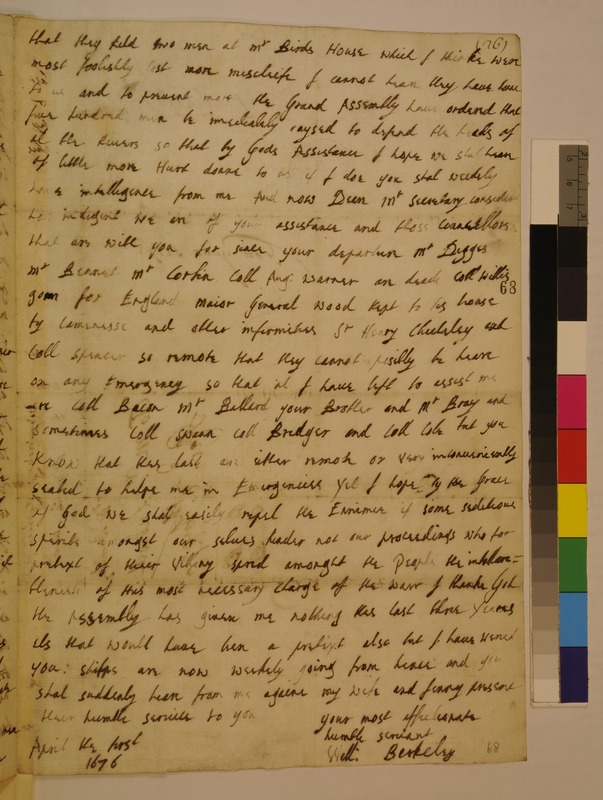 (26)
that they kild two men at mr Birds House which I thinke were
most foolishly lost more mischeife I cannot hean they have done
to us and to prevent more the Grand Assembly have ordered that
five hundred men be imediately raysed to defend the heads of
al the Rivers so that by Gods Assistance I hope we shal hean
of little more Hurt donne to us if I doe you shal weekly
have intelligence from me And now Dean mr secretary consider
how indigent we are of your assistance and thoss Councellors
that are with you for since your departure mr Digges
mr Bennet mr Corbin Coll Aug: Warner are dead Coll Willis
68
gonn for England maior General Wood kept to his house
by Lamenesse and other infirmities Sr Henry Checheley and
Coll Spencer so remote that they cannot possibly be heare
on any Emergency so that al I have left to assist me
are Coll Bacon mr Ballard your Brother and mr Bray and
sometimes Coll Swann Coll Bridger and Coll Cole but you
Know that thes last are either remote or very inconveniently
seated to helpe me in Emergencies Yet I hope by the Grace
of God we shal easily repel the Ennimie if some seditious
spirits amongst our selves hinder not our proceedings who for
pretext of their Vilany spred amongst the People the intolera=
blenesse of this most necessary charge of the warr I thanke God
the Assembly has given me nothing thes last three yeares
els that would have ben a pretext also but I have weried
you: shipps are now weekely going from hence and you
shal suddenly hean from me againe my wife and present
their humble service to you
your most affectionate
humble servant
Will: Berkeley
April the first
1676
68